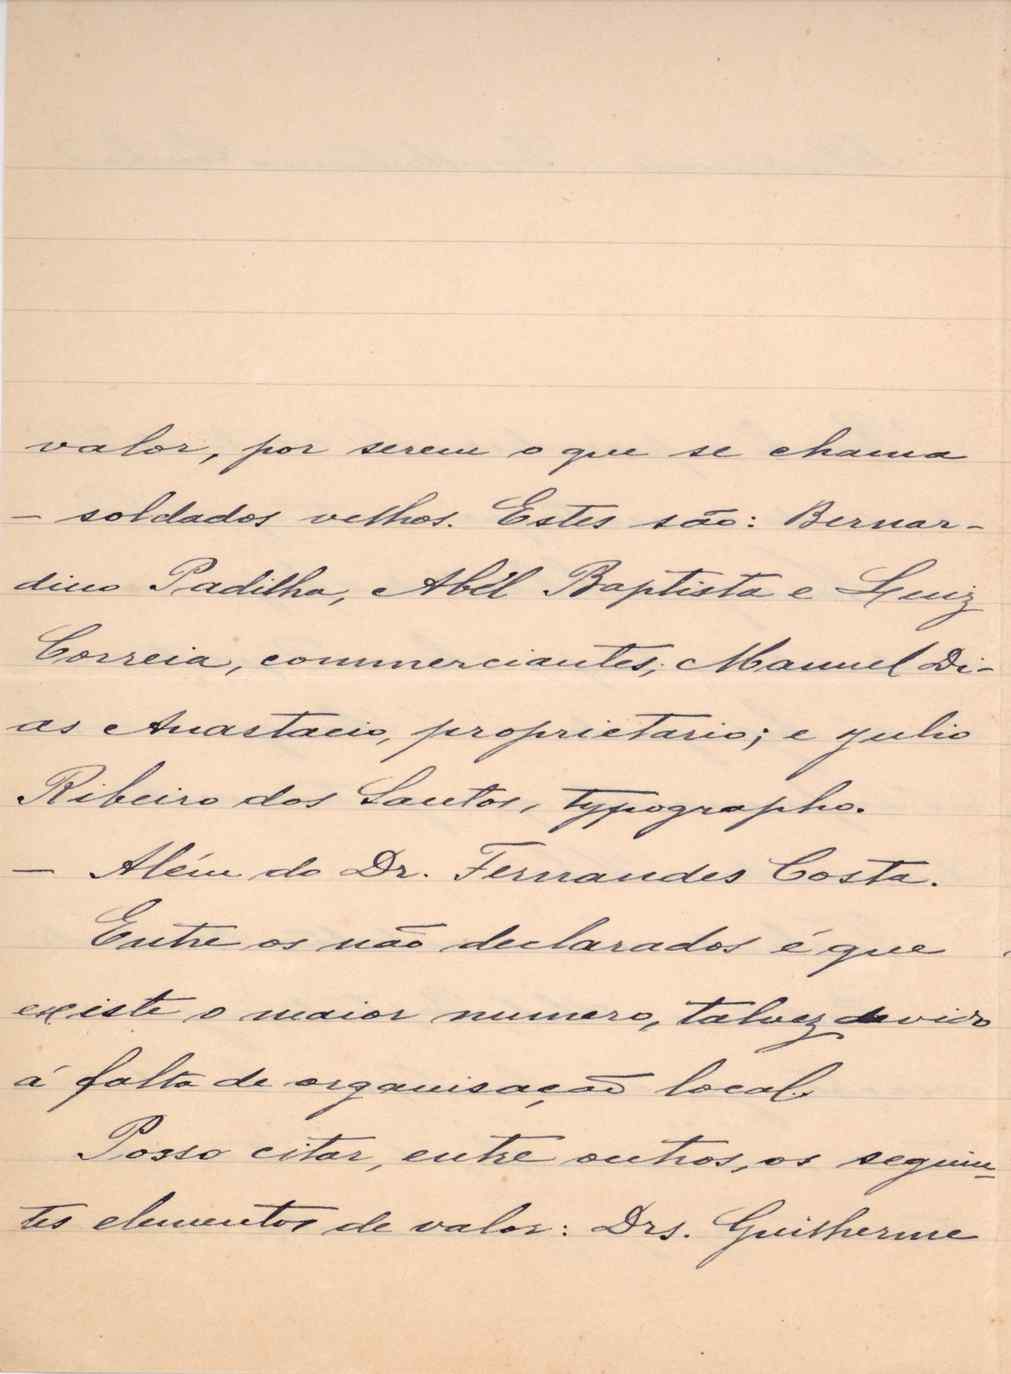 valor, por serem o que se chama
— soldados velhos. Estes são: Bernar-
dino Padilha, Abél Baptista e Luiz
Correia, commerciantes; Manuel Di-
as Anastacio, proprietario; e Julio
Ribeiro dos Santos, typographo.
— Além do Dr. Fernandes Costa.
Entre os não declarados é que
existe o maior numero, talvez devido
á falta de organisação local.
Posso citar, entre outros, os seguin-
tes elementos de valor: Drs. Guilherme